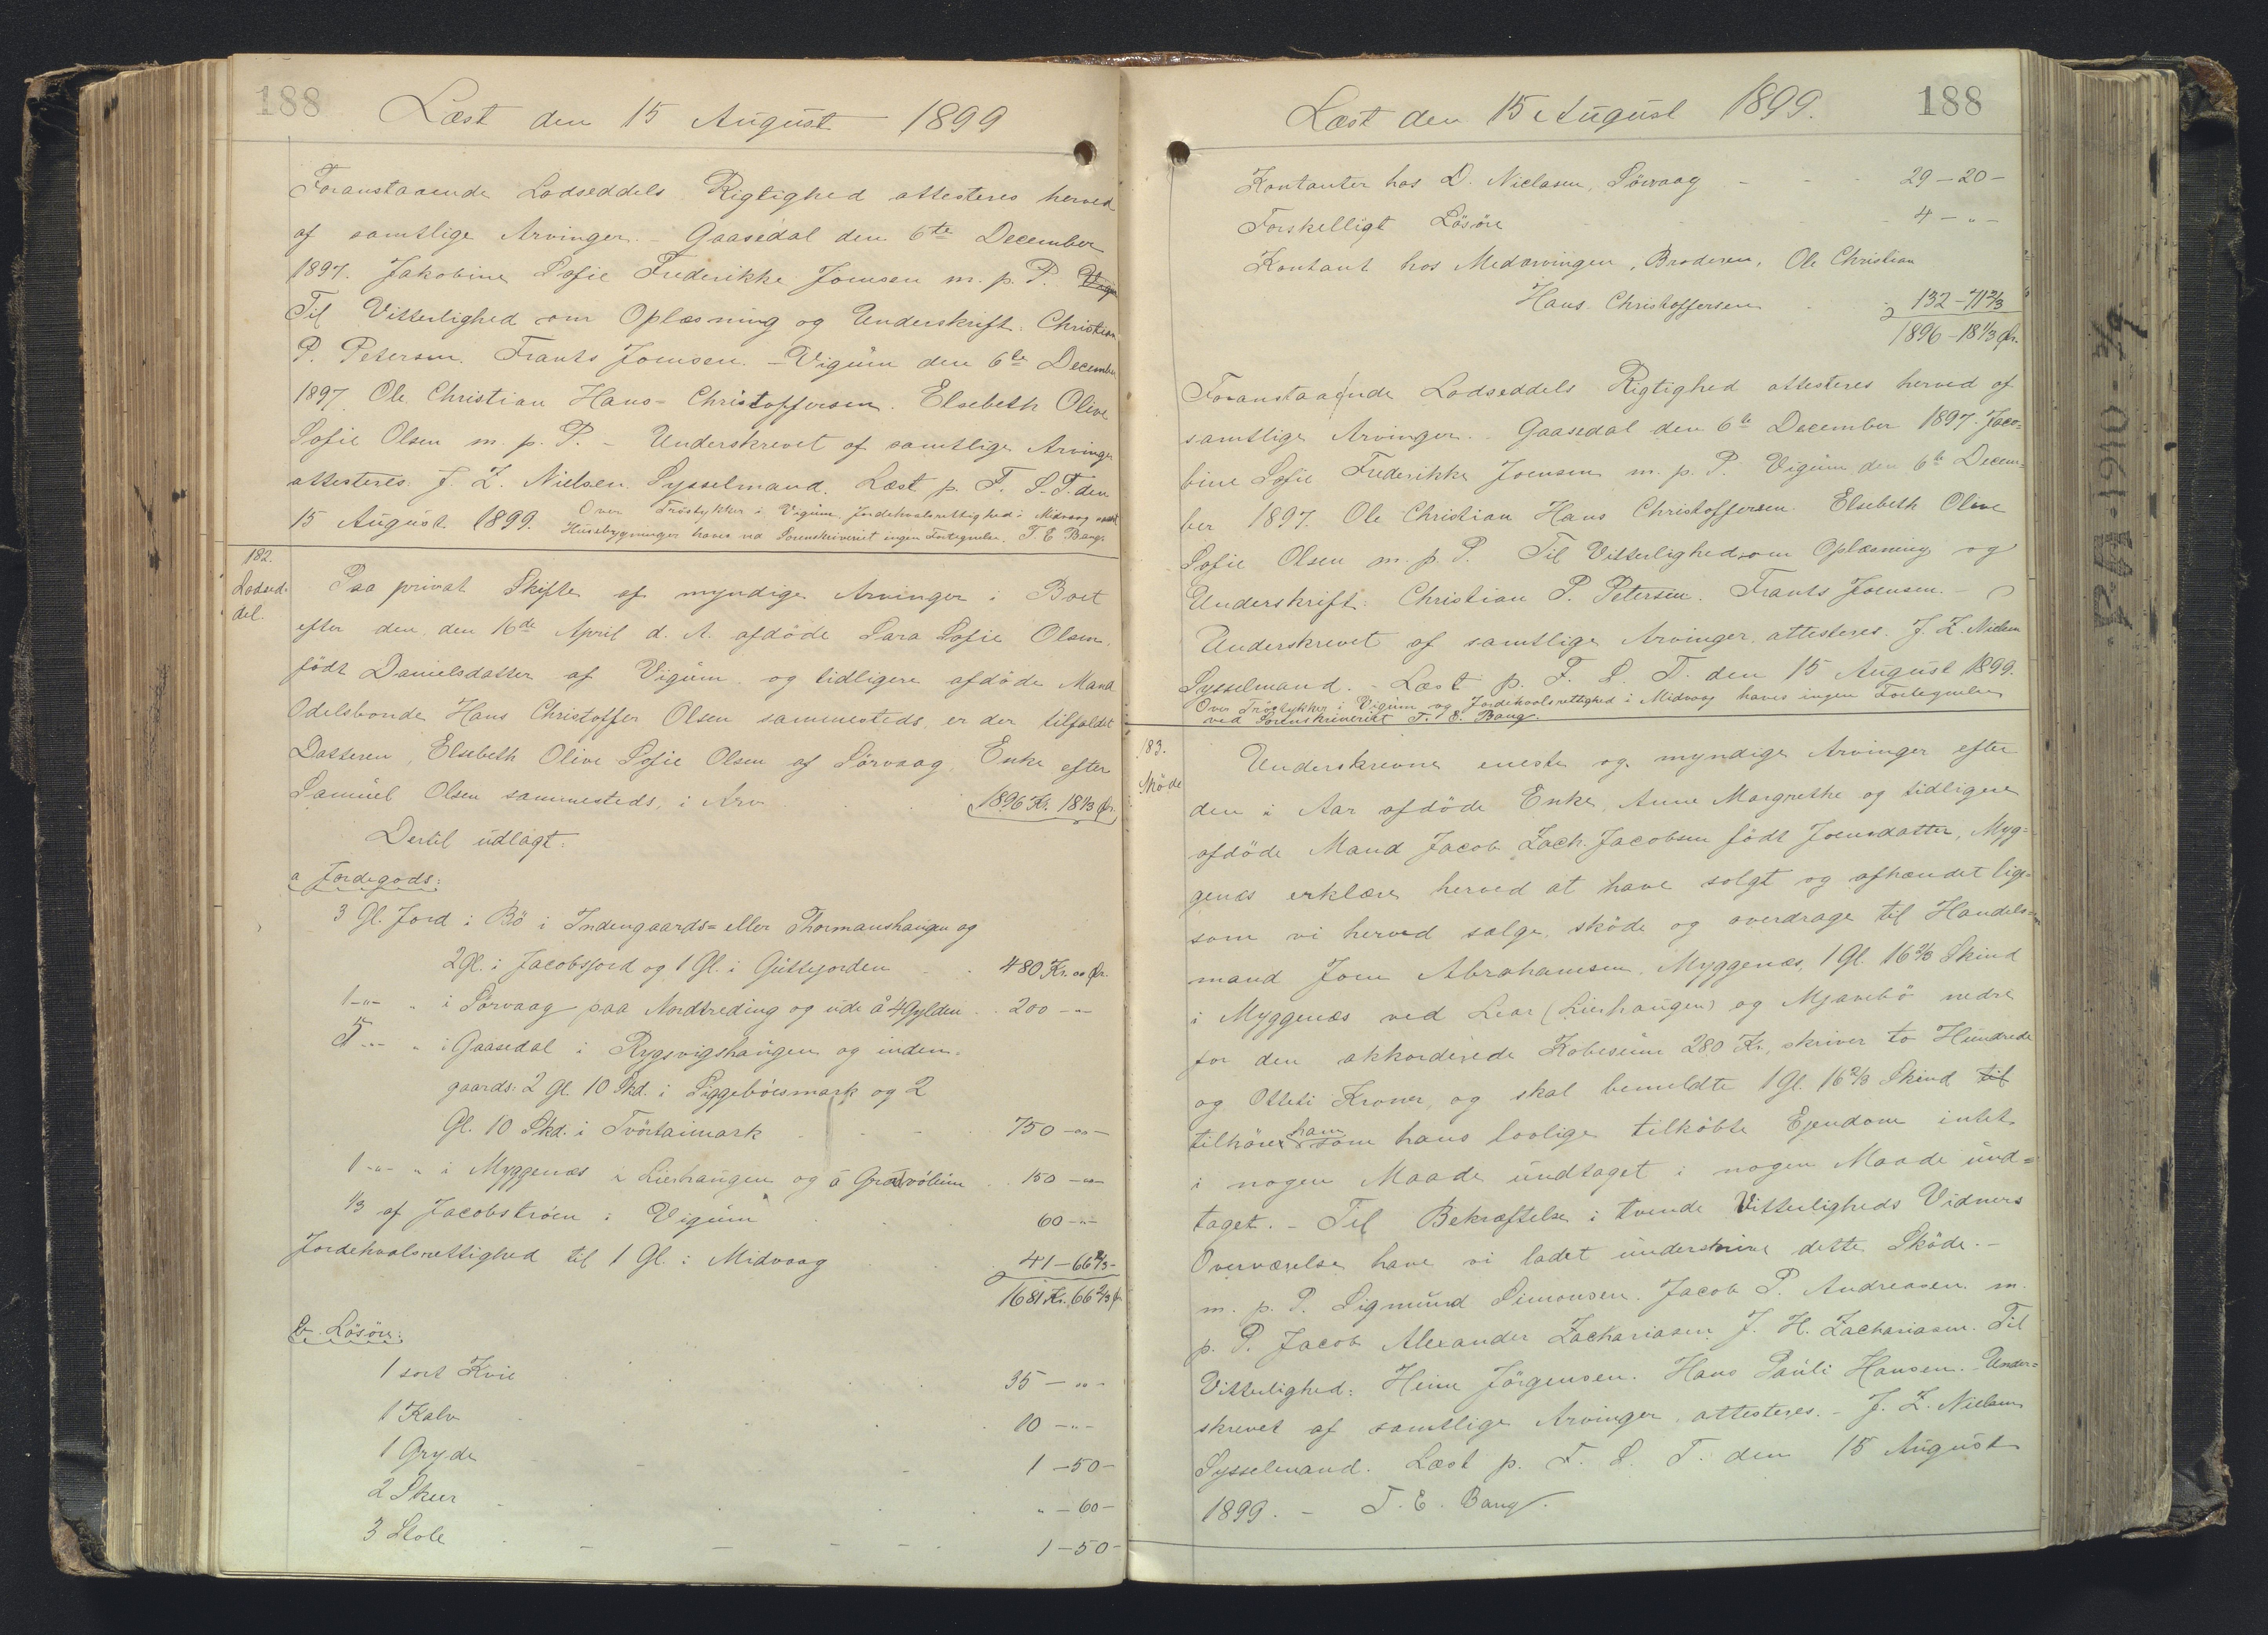 188
Læst den 15 August 1899
Foranstaaende Lodseddels Rigtighed attesteres herved
af samtlige Arvinger. - Gaasedal den 6te December
1897. Jakobine Sofie Frederikke Joensen m. p. P.
Til Vitterlighed om Oplæsning og Underskrift: Christian
P. Petersen. Frants Joensen. - Vigum den 6te December
1897. Ole Christian Hans Christoffersen. Elsebeth Olive
Sofie Olsen m. p. P. - Underskrevet af samtlige Arvinger
attesteres: J. Z. Nielsen. Sysselmand. Læst p. F. S. T. den
15 August 1899. Over Tröstykker i Vigum, Jordehvalsrettighed i Midvaag samt
Huusbygninger haves ved Sorenskriveriet ingen Fortegnelse. T. E. Bang
182.
Lodsed-
del.
Paa privat Skifte af myndige Arvinger i Boet
efter den den 16de April d. A. afdöde Sara Sofie Olsen,
födt Danielsdatter af Vigum og tidligere afdöde Mand
Odelsbonde Hans Christoffer Olsen sammesteds, er der tilfaldet
Datteren, Elsebeth Olive Sofie Olsen af Sörvaag, Enke efter
Samuel Olsen sammesteds, i Arv 1896 Kr. 18 1/3 Ør.
Dertil udlagt:
a Jordegods:
3 Gl. Jord i Bö i Indengaards= eller Thormanshaugen og
2 Gl. i Jacobsjord og 1 Gl. i Guttejorden 480 Kr. " Ør.
1 - " - " i Sörvaag paa Nordtreding og ude á 4 Gylden 200 - " -
5 - " - " i Gaasedal i Rygsvigshaugen og inden-
gaards: 2 Gl. 10 Skd. i Liggeböismark og 2
Gl. 10 Skd. i Tvörtaimark 750 - " -
1 - " - " i Myggenæs i Lierhaugen og á Gravvóllum 150 - " -
1/3 af Jacobströen i Vigum 60 - " -
Jordehvalsrettighed til 1 Gl. i Midvaag 41 - 66 2/3 -
1681 Kr. 66 2/3 Ør
b. Lösöre:
1 sort Kvie 35 - " -
1 Kalv 10 - " -
1 Gryde 1 - 50 -
2 Skeer " - 60 -
3 Stole 1 - 50 -
Læst den 15 August 1899. 188
Kontanter hos D. Niclasen, Sörvaag 29 - 20 -
Forskelligt Lösöre 4 - " -
Kontant hos Medarvingen, Broderen, Ole Christian
Hans Christoffersen 132 - 71 2/3
1896 - 18 1/3 Ør.
Foranstaaende Lodseddels Rigtighed attesteres herved af
samtlige Arvinger. - Gaasedal den 6te December 1897. Jaco-
bine Sofie Frederikke Joensen m. p. P. Vigum den 6te Decem-
ber 1897. Ole Christian Hans Christoffersen. Elsebeth Olive
Sofie Olsen m. p. P. Til Vitterlighed om Oplæsning og
Underskrift: Christian P. Petersen. Frants Joensen. -
Underskrevet af samtlige Arvinger attesteres. J. Z. Nielsen
Sysselmand. - Læst p. F. S. T. den 15 August 1899.
Over Tröstykker i Vigum og Jordehvalsrettighed i Midvaag haves ingen Fortegnelse
ved Sorenskriveriet T. E. Bang.
183.
Sköde
Underskrevne eneste og myndige Arvinger efter
den i Aar afdöde Enke, Anne Margrethe og tidligere
afdöde Mand Jacob Zach. Jacobsen födt Joensdatter, Myg-
genæs erklære herved at have solgt og afhændet lige-
som vi herved sælge, sköde og overdrage til Handels-
mand Joen Abrahamsen, Myggenæs, 1 Gl. 16 2/3 Skind
i Myggenæs ved Lear (Lierhaugen) og Mjavebö nedre
for den akkorderede Köbesum 280 Kr., skriver to Hundrede
og Otteti Kroner, og skal bemeldte 1 Gl. 16 2/3 Skind til
tilhöre ham som hans lovlige tilköbte Ejendom intet
i nogen Maade undtaget i nogen Maade und=
taget. - Til Bekræftelse i tvende Vitterligheds Vidners
Overværelse have vi ladet underskrive dette Sköde. -
m. p. P. Sigmund Simonsen. Jacob P. Andreasen m.
p. P. Jacob Alexander Zachariasen J. H. Zachariasen. Til
Vitterlighed: Heine Jörgensen. Hans Pauli Hansen. Under=
skrevet af samtlige Arvinger attesteres. - J. Z. Nielsen
Sysselmand. Læst p. F. S. T. den 15 August
1899. - T. E. Bang.